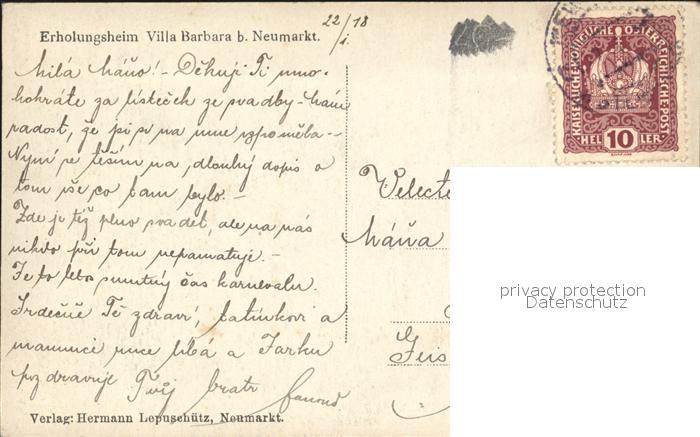 22/I 18
Erholungsheim Villa Barbara b. Neumarkt.
Milá Máňo! - Děkuji Ti mno-
hokráte za lísteček ze svadby - mám
radost, že jsi si na mne vzpoměla -
Nyní se těším na "dlouhý dopis o
tom vše co tam bylo. -
Zde je též plno svadeb, ale na nás
nikdo při tom nepamatuje. -
Je to letos smutný čas karnevalu.
Srdečně Tě zdraví, tatínkovi a
mamince ruce líbá a Jarku
pozdravuje Tvůj bratr
Verlag: Hermann Lepuschütz, Neumarkt.
KAISERLICHE KÖNIGLICHE ÖSTERREICHISCHE POST
HEL 10 LER
Velect
Máňa
Feis
privacy protection
Datenschutz